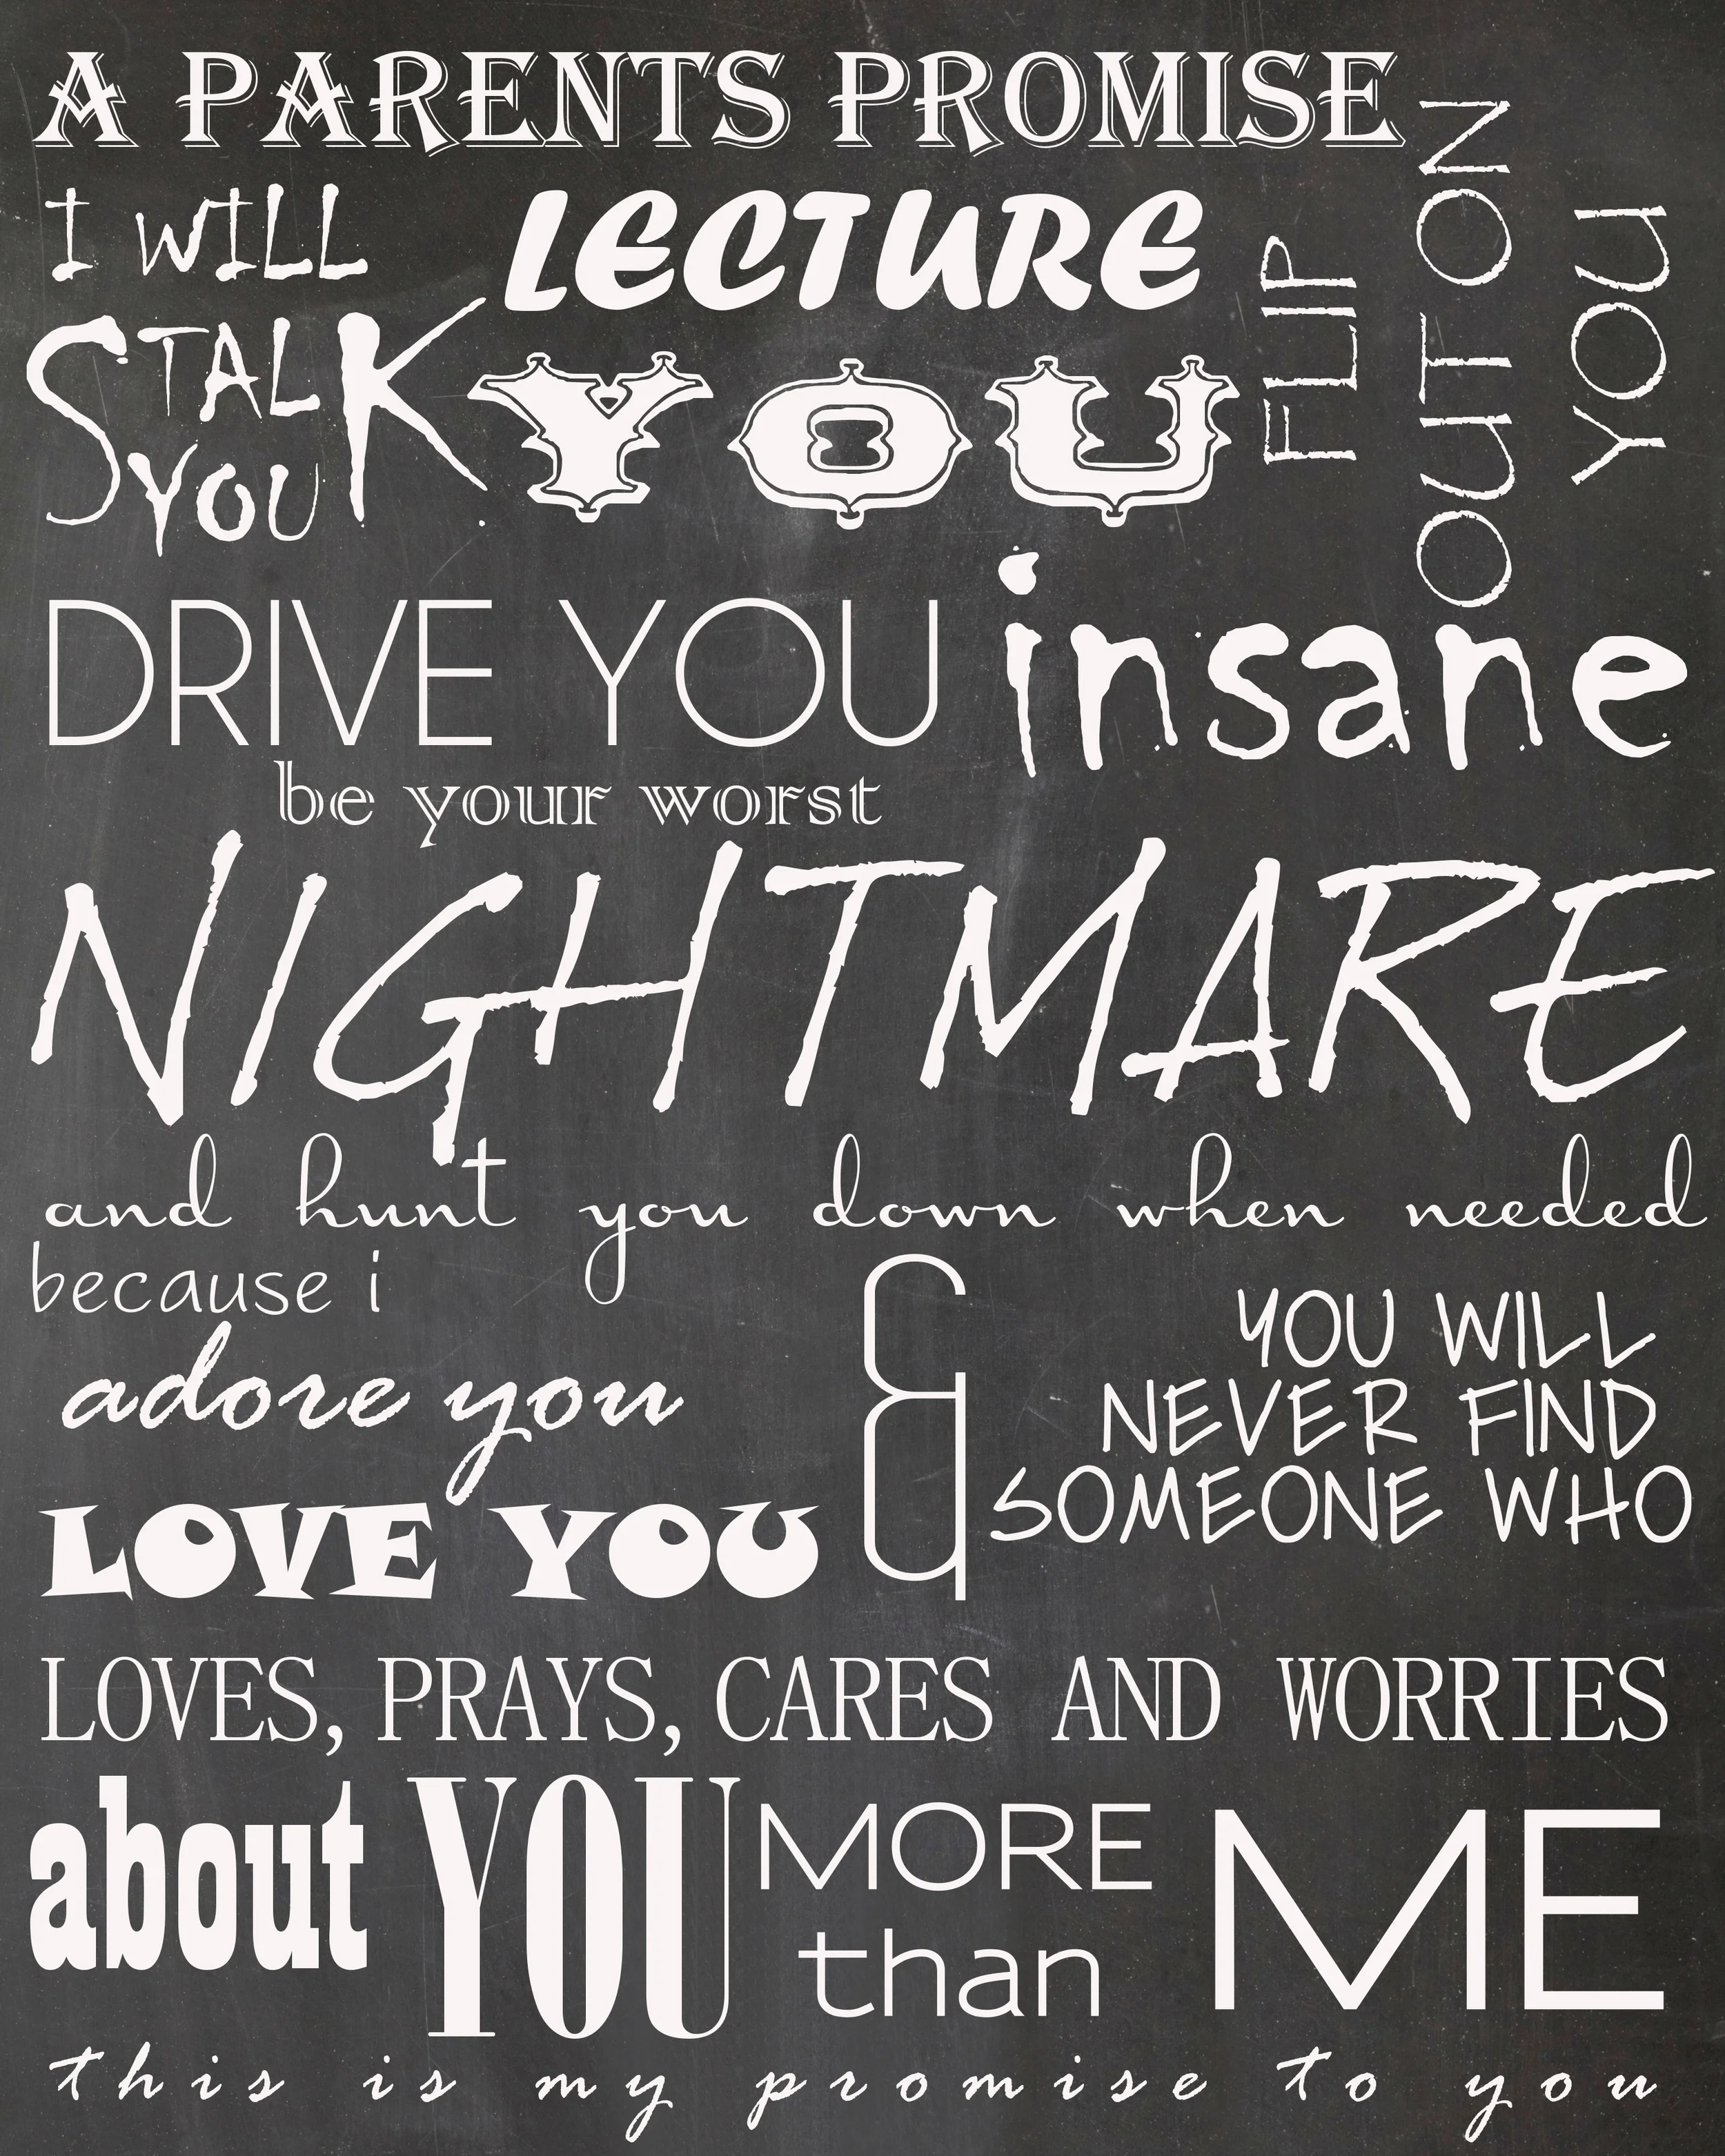 A PARENTS PROMISE
I WILL
STALK
YOU
LECTURE
YOU
FLIP
OUT ON
YOU
DRIVE YOU insane
be your worst
NIGHTMARE
and hunt you down when needed
because i
adore you
LOVE YOU
&
YOU WILL
NEVER FIND
SOMEONE WHO
LOVES, PRAYS, CARES AND WORRIES
about YOU MORE
than
ME
this is my promise to you